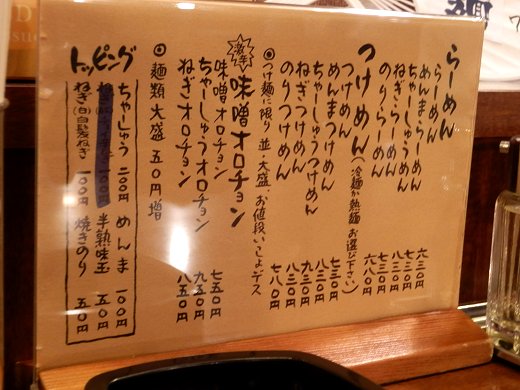 らーめん
らーめん 六三〇円
めんまらーめん 七三〇円
ちゃーしゅうめん 八三〇円
ねぎらーめん 七三〇円
のりらーめん 六八〇円
つけめん（冷麺か熱麺お選び下さい）
つけめん 七三〇円
めんまつけめん 八三〇円
ちゃーしゅうつけめん 九三〇円
ねぎつけめん 八三〇円
のりつけめん 七八〇円
つけ麺に限り 並・大盛・お値段いっしょデス
激辛 味噌オロチョン
味噌オロチョン 七五〇円
ちゃーしゅうオロチョン 九五〇円
ねぎオロチョン 八五〇円
◎麺類大盛五〇円増
トッピング
ちゃーしゅう 二〇〇円 めんま 一〇〇円
一〇〇円 半熟味玉 五〇円
ねぎ(白)白髪ねぎ 一〇〇円 焼きのり 五〇円